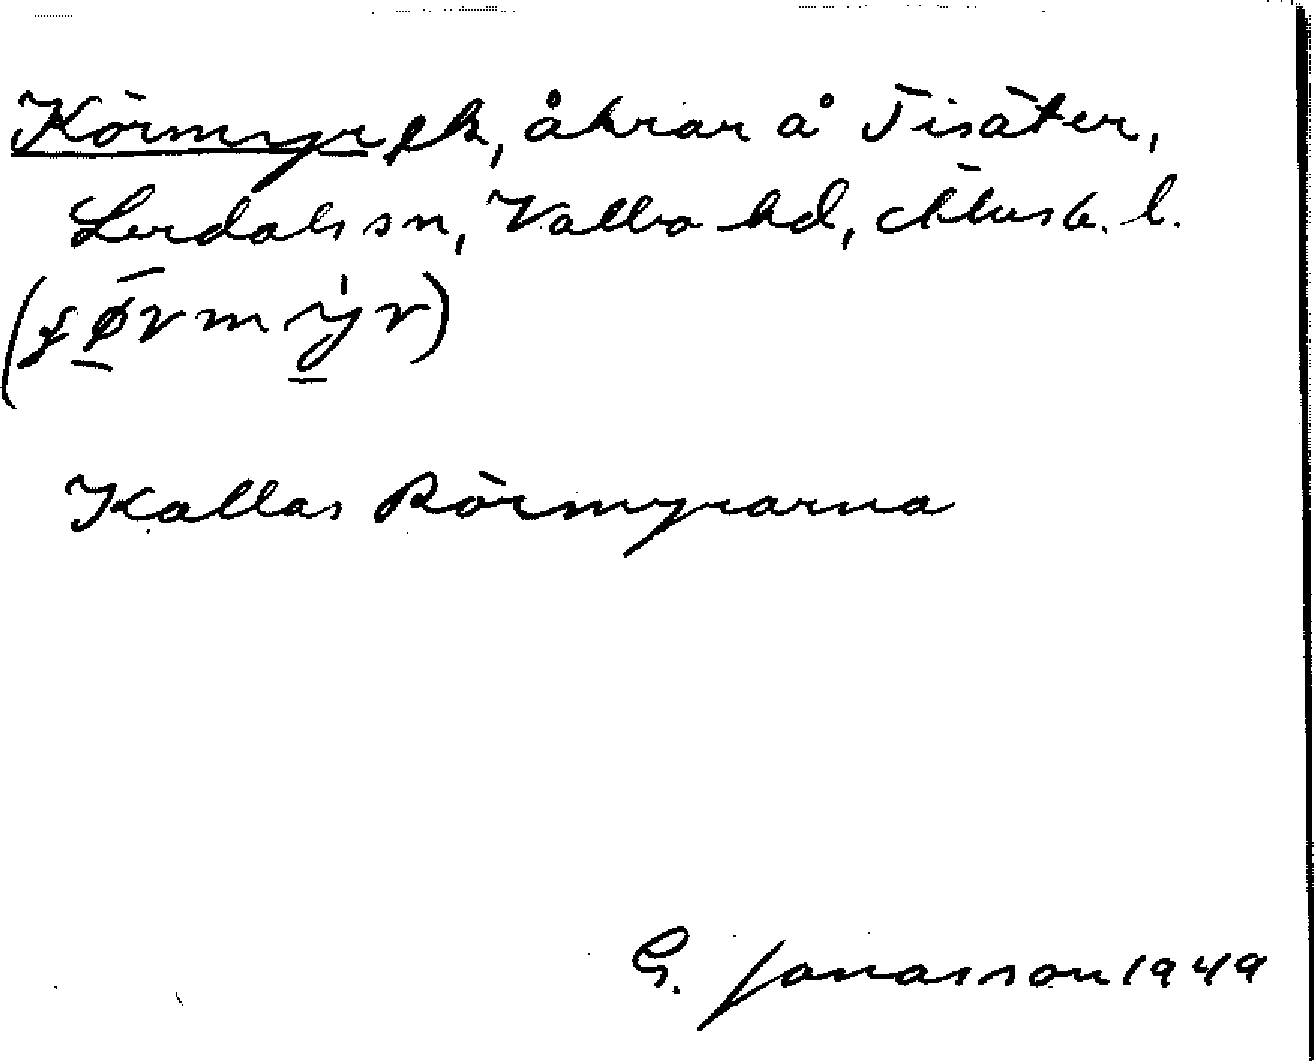 Körmyr pl., åkrar å Tisäter,
Lerdals sn, Valbo hd, Älvsb. l.
Kallas Körmyrarna
G. Jonasson 1949